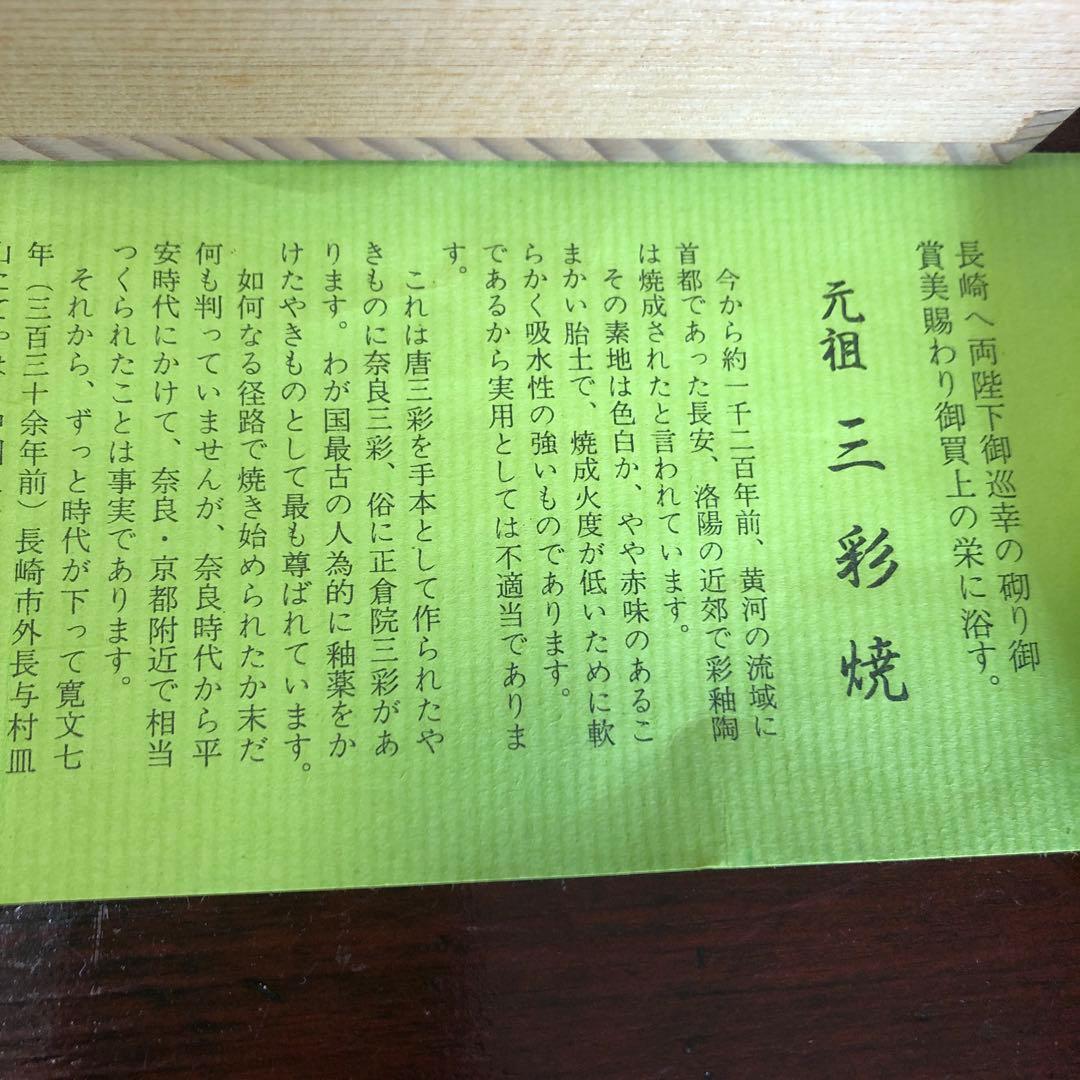 長崎へ両陛下御巡幸の砌り御
賞美賜わり御買上の栄に浴す。
元祖 三彩焼
今から約一千二百年前、黄河の流域に
首都であった長安、洛陽の近郊で彩釉陶
は焼成されたと言われています。
その素地は色白か、やや赤味のあるこ
まかい胎土で、焼成火度が低いために軟
らかく吸水性の強いものであります。
であるから実用としては不適当でありま
す。
これは唐三彩を手本として作られたや
きものに奈良三彩、俗に正倉院三彩があ
ります。わが国最古の人為的に釉薬をか
けたやきものとして最も尊ばれています。
如何なる径路で焼き始められたか末だ
何も判っていませんが、奈良時代から平
安時代にかけて、奈良・京都附近で相当
つくられたことは事実であります。
それから、ずっと時代が下って寛文七
年（三百三十余年前）長崎市外長与村皿